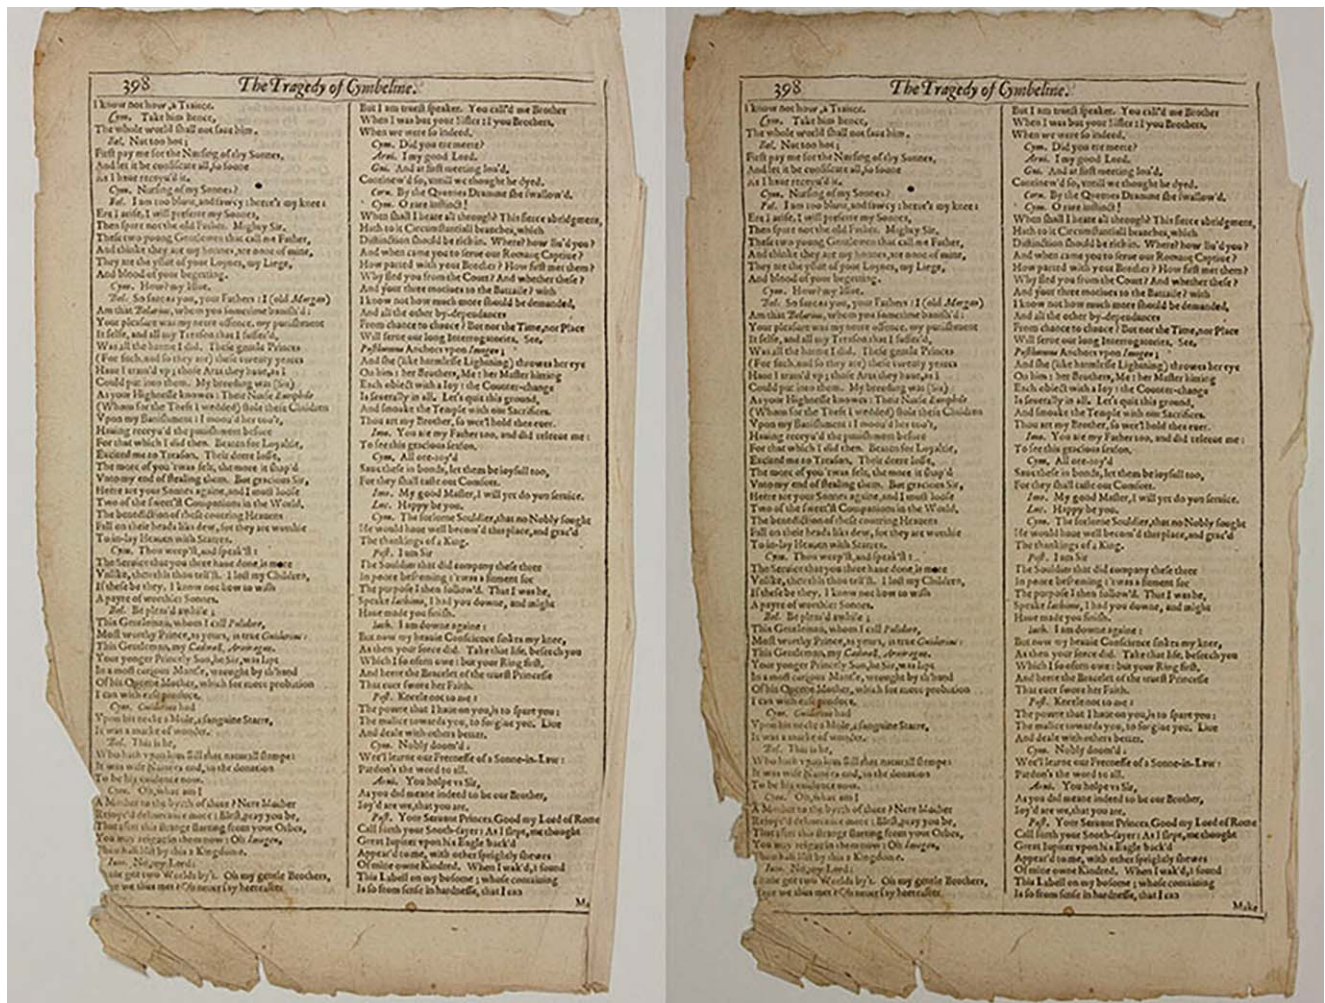 398 The Tragedy of Cymbeline.
I know not how, a Traitor.
Cym. Take him hence,
The whole world shall not saue him.
Bel. Not too hot;
First pay me for the Nursing of thy Sonnes,
And let it be confiscate all, so soone
As I haue receyu'd it.
Cym. Nursing of my Sonnes?
Bel. I am too blunt, and sawcy: heere's my knee:
Ere I arise, I will preferre my Sonnes,
Then spare not the old Father. Mighty Sir,
These two young Gentlemen that call me Father,
And thinke they are my Sonnes, are none of mine,
They are the yssue of your Loynes, my Liege,
And blood of your begetting.
Cym. How? my Issue.
Bel. So sure as you, your Fathers: I (old Morgan)
Am that Belarius, whom you sometime banish'd:
Your pleasure was my neere offence, my punishment
It selfe, and all my Treason that I suffer'd,
Was all the harme I did. These gentle Princes
(For such, and so they are) these twenty yeares
Haue I train'd vp; those Arts they haue, as I
Could put into them. My breeding was (Sir)
As your Highnesse knowes: Their Nurse Euriphile
(Whom for the Theft I wedded) stole these Children
Vpon my Banishment: I moou'd her too't,
Hauing receyu'd the punishment before
For that which I did then. Beaten for Loyaltie,
Excited me to Treason. Their deere losse,
The more of you 'twas felt, the more it shap'd
Vnto my end of stealing them. But gracious Sir,
Heere are your Sonnes againe, and I must loose
Two of the sweet'st Companions in the World.
The benediction of these couering Heauens
Fall on their heads like dew, for they are worthie
To in-lay Heauen with Starres.
Cym. Thou weep'st, and speak'st:
The Seruice that you three haue done, is more
Vnlike, then this thou tell'st. I lost my Children,
If these be they, I know not how to wish
A payre of worthier Sonnes.
Bel. Be pleas'd awhile;
This Gentleman, whom I call Polidore,
Most worthy Prince, as yours, is true Guiderius:
This Gentleman, my Cadwall, Aruiragus.
Your yonger Princely Son, he Sir, was lapt
In a most curious Mantle, wrought by th'hand
Of his Queene Mother, which for more probation
I can with ease produce.
Cym. Guiderius had
Vpon his necke a Mole, a sanguine Starre,
It was a marke of wonder.
Bel. This is he,
Who hath vpon him still that naturall stampe:
It was wise Natures end, in the donation
To be his euidence now.
Cym. Oh, what am I
A Mother to the byrth of three? Nere Mother
Reioyc'd deliuerance more: Blest, pray you be,
That after this strange starting from your Orbes,
You may reigne in them now: Oh Imogen,
Thou hast lost by this a Kingdome.
Imo. No, my Lord:
haue got two Worlds by't. Oh my gentle Brothers,
we thus met? Oh neuer say heereafter
But I am truest speaker. You call'd me Brother
When I was but your Sister: I you Brothers,
When we were so indeed.
Cym. Did you ere meete?
Arui. I my good Lord.
Gui. And at first meeting lou'd,
Continew'd so, vntill we thought he dyed.
Corn. By the Queenes Dramme she swallow'd.
Cym. O rare instinct!
When shall I heare all through? This fierce abridgment,
Hath to it Circumstantiall branches, which
Distinction should be rich in. Where? how liu'd you?
And when came you to serue our Romane Captiue?
How parted with your Brother? How first met them?
Why fled you from the Court? And whether these?
And your three motiues to the Battaile? with
I know not how much more should be demanded,
And all the other by-dependances
From chance to chance? But nor the Time, nor Place
Will serue our long Interrogatories. See,
Posthumus Anchors vpon Imogen;
And she (like harmlesse Lightning) throwes her eye
On him: her Brothers, Me: her Master hitting
Each obiect with a Ioy: the Counter-change
Is seuerally in all. Let's quit this ground,
And smoake the Temple with our Sacrifices.
Thou art my Brother, so wee'l hold thee euer.
Imo. You are my Father too, and did releeue me:
To see this gracious season.
Cym. All ore-ioy'd
Saue these in bonds, let them be ioyfull too,
For they shall taste our Comfort.
Imo. My good Master, I will yet do you seruice.
Luc. Happy be you.
Cym. The forlorne Souldier, that no Nobly fought
He would haue well becom'd this place, and grac'd
The thankings of a King.
Post. I am Sir
The Souldier that did company these three
In poore beseeming: 'twas a fitment for
The purpose I then follow'd. That I was he,
Speake Iachimo, I had you downe, and might
Haue made you finish.
Iach. I am downe againe:
But now my heauie Conscience sinkes my knee,
As then your force did. Take that life, beseech you
Which I so often owe: but your Ring first,
And heere the Bracelet of the truest Princesse
That euer swore her Faith.
Post. Kneele not to me:
The powre that I haue on you, is to spare you:
The malice towards you, to forgiue you. Liue
And deale with others better.
Cym. Nobly doom'd:
Wee'l learne our Freenesse of a Sonne-in-Law:
Pardon's the word to all.
Arui. You holpe vs Sir,
As you did meane indeed to be our Brother,
Ioy'd are we, that you are.
Post. Your Seruant Princes. Good my Lord of Rome
Call forth your Sooth-sayer: As I slept, me thought
Great Iupiter vpon his Eagle back'd
Appear'd to me, with other sprightly shewes
Of mine owne Kindred. When I wak'd, I found
This Labell on my bosome; whose containing
Is so from sense in hardnesse, that I can
Ma
398 The Tragedy of Cymbeline.
I know not how, a Traitor.
Cym. Take him hence,
The whole world shall not saue him.
Bel. Not too hot;
First pay me for the Nursing of thy Sonnes,
And let it be confiscate all, so soone
As I haue receyu'd it.
Cym. Nursing of my Sonnes?
Bel. I am too blunt, and sawcy: heere's my knee:
Ere I arise, I will preferre my Sonnes,
Then spare not the old Father. Mighty Sir,
These two young Gentlemen that call me Father,
And thinke they are my Sonnes, are none of mine,
They are the yssue of your Loynes, my Liege,
And blood of your begetting.
Cym. How? my Issue.
Bel. So sure as you, your Fathers: I (old Morgan)
Am that Belarius, whom you sometime banish'd:
Your pleasure was my neere offence, my punishment
It selfe, and all my Treason that I suffer'd,
Was all the harme I did. These gentle Princes
(For such, and so they are) these twenty yeares
Haue I train'd vp; those Arts they haue, as I
Could put into them. My breeding was (Sir)
As your Highnesse knowes: Their Nurse Euriphile
(Whom for the Theft I wedded) stole these Children
Vpon my Banishment: I moou'd her too't,
Hauing receyu'd the punishment before
For that which I did then. Beaten for Loyaltie,
Excited me to Treason. Their deere losse,
The more of you 'twas felt, the more it shap'd
Vnto my end of stealing them. But gracious Sir,
Heere are your Sonnes againe, and I must loose
Two of the sweet'st Companions in the World.
The benediction of these couering Heauens
Fall on their heads like dew, for they are worthie
To in-lay Heauen with Starres.
Cym. Thou weep'st, and speak'st:
The Seruice that you three haue done, is more
Vnlike, then this thou tell'st. I lost my Children,
If these be they, I know not how to wish
A payre of worthier Sonnes.
Bel. Be pleas'd awhile;
This Gentleman, whom I call Polidore,
Most worthy Prince, as yours, is true Guiderius:
This Gentleman, my Cadwall, Aruiragus.
Your yonger Princely Son, he Sir, was lapt
In a most curious Mantle, wrought by th'hand
Of his Queene Mother, which for more probation
I can with ease produce.
Cym. Guiderius had
Vpon his necke a Mole, a sanguine Starre,
It was a marke of wonder.
Bel. This is he,
Who hath vpon him still that naturall stampe:
It was wise Natures end, in the donation
To be his euidence now.
Cym. Oh, what am I
A Mother to the byrth of three? Nere Mother
Reioyc'd deliuerance more: Blest, pray you be,
That after this strange starting from your Orbes,
You may reigne in them now: Oh Imogen,
Thou hast lost by this a Kingdome.
Imo. No, my Lord:
haue got two Worlds by't. Oh my gentle Brothers,
we thus met? Oh neuer say heereafter
But I am truest speaker. You call'd me Brother
When I was but your Sister: I you Brothers,
When we were so indeed.
Cym. Did you ere meete?
Arui. I my good Lord.
Gui. And at first meeting lou'd,
Continew'd so, vntill we thought he dyed.
Corn. By the Queenes Dramme she swallow'd.
Cym. O rare instinct!
When shall I heare all through? This fierce abridgment,
Hath to it Circumstantiall branches, which
Distinction should be rich in. Where? how liu'd you?
And when came you to serue our Romane Captiue?
How parted with your Brother? How first met them?
Why fled you from the Court? And whether these?
And your three motiues to the Battaile? with
I know not how much more should be demanded,
And all the other by-dependances
From chance to chance? But nor the Time, nor Place
Will serue our long Interrogatories. See,
Posthumus Anchors vpon Imogen;
And she (like harmlesse Lightning) throwes her eye
On him: her Brothers, Me: her Master hitting
Each obiect with a Ioy: the Counter-change
Is seuerally in all. Let's quit this ground,
And smoake the Temple with our Sacrifices.
Thou art my Brother, so wee'l hold thee euer.
Imo. You are my Father too, and did releeue me:
To see this gracious season.
Cym. All ore-ioy'd
Saue these in bonds, let them be ioyfull too,
For they shall taste our Comfort.
Imo. My good Master, I will yet do you seruice.
Luc. Happy be you.
Cym. The forlorne Souldier, that no Nobly fought
He would haue well becom'd this place, and grac'd
The thankings of a King.
Post. I am Sir
The Souldier that did company these three
In poore beseeming: 'twas a fitment for
The purpose I then follow'd. That I was he,
Speake Iachimo, I had you downe, and might
Haue made you finish.
Iach. I am downe againe:
But now my heauie Conscience sinkes my knee,
As then your force did. Take that life, beseech you
Which I so often owe: but your Ring first,
And heere the Bracelet of the truest Princesse
That euer swore her Faith.
Post. Kneele not to me:
The powre that I haue on you, is to spare you:
The malice towards you, to forgiue you. Liue
And deale with others better.
Cym. Nobly doom'd:
Wee'l learne our Freenesse of a Sonne-in-Law:
Pardon's the word to all.
Arui. You holpe vs Sir,
As you did meane indeed to be our Brother,
Ioy'd are we, that you are.
Post. Your Seruant Princes. Good my Lord of Rome
Call forth your Sooth-sayer: As I slept, me thought
Great Iupiter vpon his Eagle back'd
Appear'd to me, with other sprightly shewes
Of mine owne Kindred. When I wak'd, I found
This Labell on my bosome; whose containing
Is so from sense in hardnesse, that I can
Make